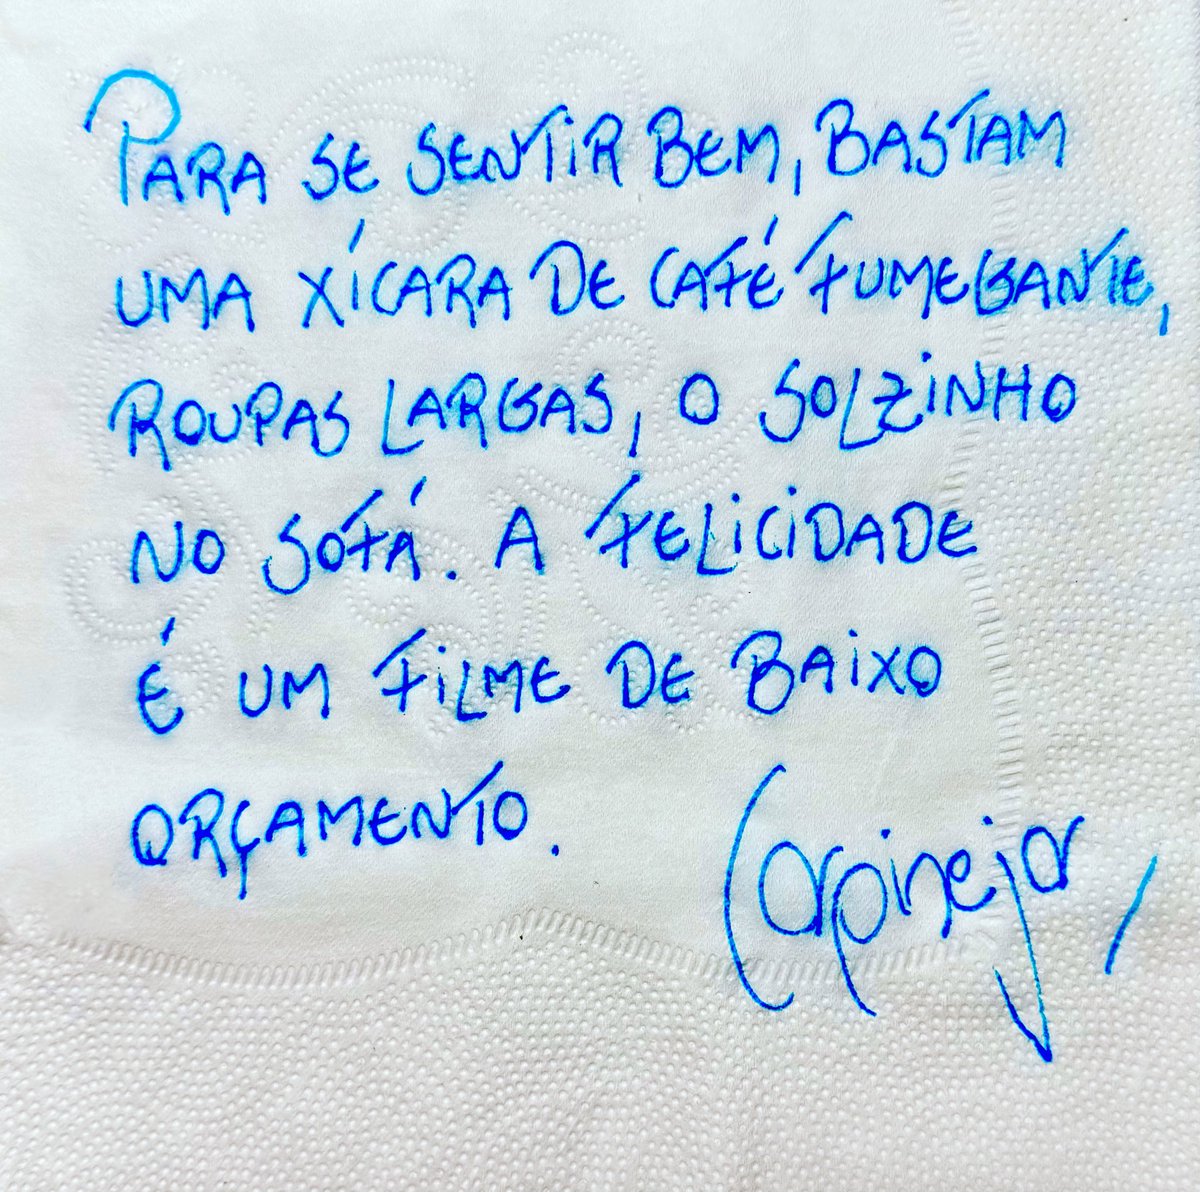 PARA SE SENTIR BEM, BASTAM
UMA XÍCARA DE CAFÉ FUMEGANTE,
ROUPAS LARGAS, O SOLZINHO
NO SOFÁ. A FELICIDADE
É UM FILME DE BAIXO
ORÇAMENTO.
Carpinejar